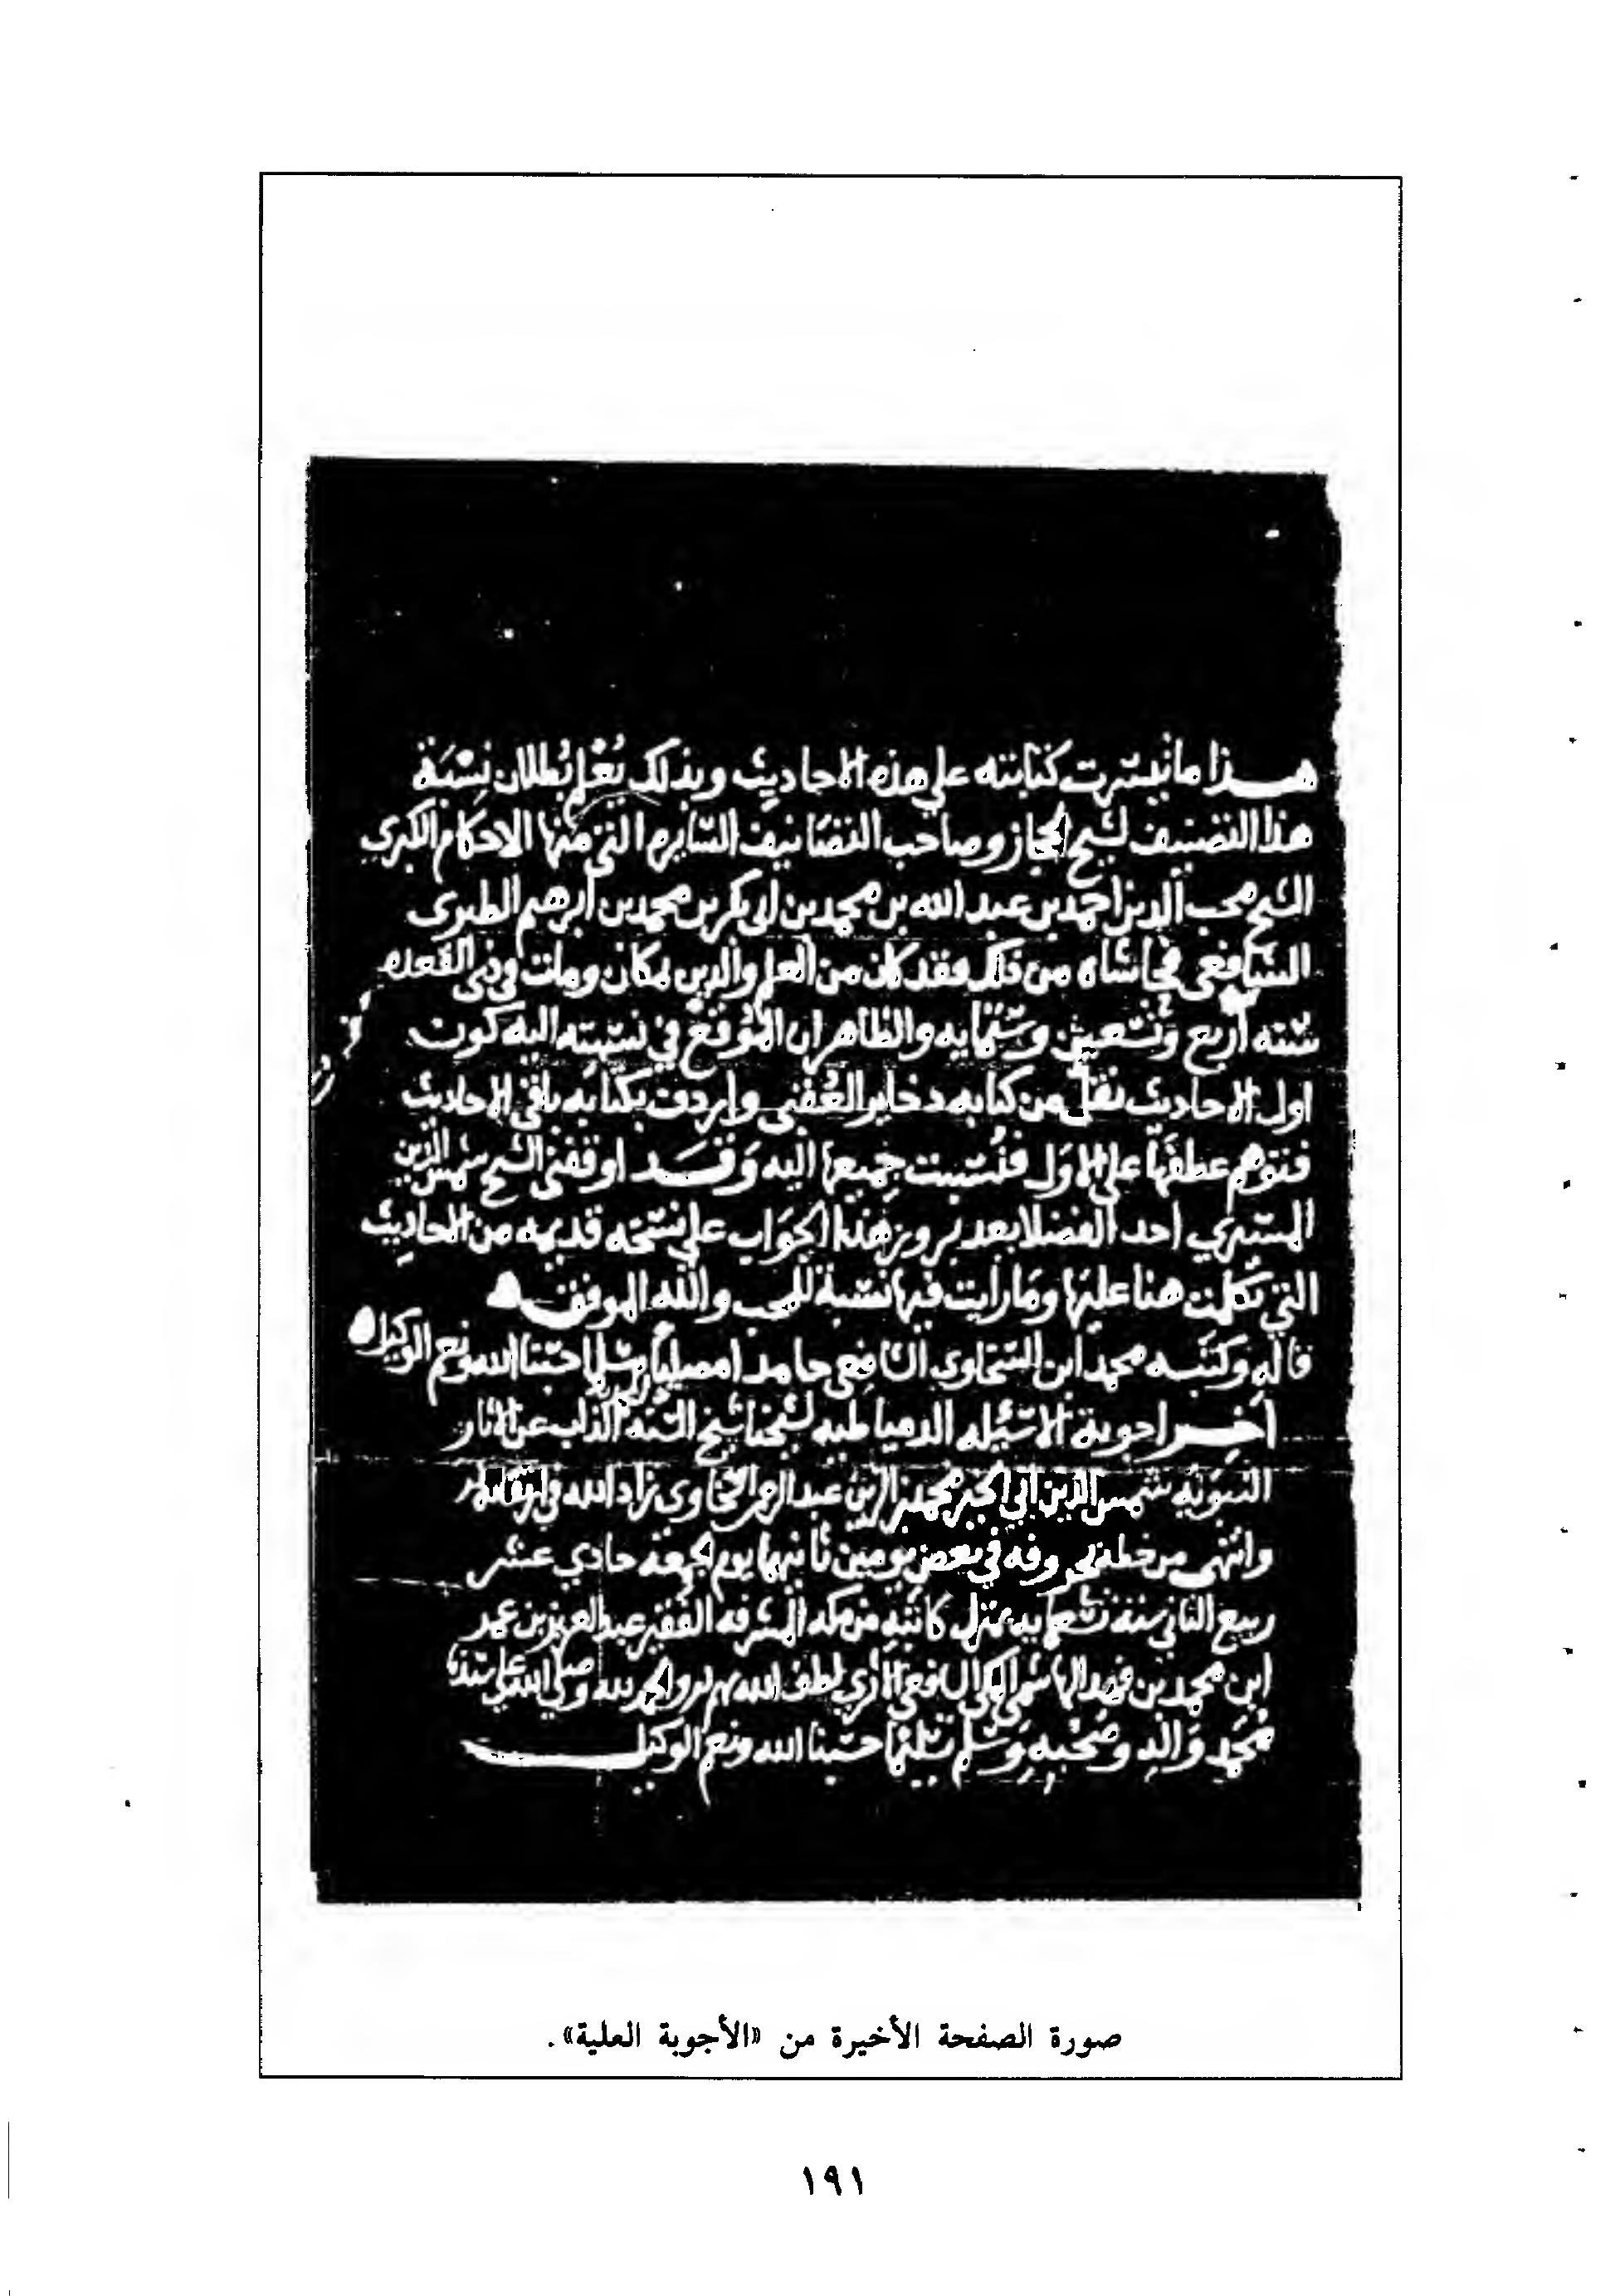 هذا ما تيسرت كتابته على هذه الاحاديث وبذلك يُعْلم بُطلان نِسْبَة
هذا التصنيف لشيخ الحجاز وصاحب التصانيف السايره التي منها الاحكام الكبرى
الشيخ محب الدين احمد بن عبد الله بن محمد بن ابى بكر بن محمد بن ابرهيم الطبرى
الشافعى فحاشاه من ذلك فقد كان من العلم والدين بمكان ومات فى ذى القعده
سنه أربع وتسعين وستمايه والظاهر ان المُوقعَ في نسبته اليه كون
اول الاحاديث نقل من كتابه ذخاير العُقبى واردف بكتابه باقي الاحاديث
فتوهم عطفها على الاوّل فنُسبت جميعها اليه وَقد اوقفنى الشيخ شمس الدين
احد الفضلا بعد بروز هذا الجوَاب على نسخه قديمه من الحاديث
التي تكلمت هنا عليها وما رأيت فيها نسبة للمحب والله الموفق
قاله وكتبه محمد ابن السخاوي الشافعى حامدا مصليا مسلما حسبنا الله ونعم الوكيل
آخر اجوبة الاسئله الدمياطيه لشيخنا شيخ السنه الذاب عن الاثار
النبويه شمس الدين ابى الخير محمد بن الزين عبد الرحمن السخاوى زاد الله في
وانتهى من خطه بحروفه في بعض يومين ثانيهما يوم الجمعه حادي عشر
ربيع الثاني سنة بمنزل كاتبه من مكه المشرفه الفقير عبد العزيز بن عمر
ابن محمد بن فهد الهاشمى المكى الشافعى الاثري لطف الله بهم والحمد لله وصلى الله على سيدنا
مُحمد وَاله وصَحْبه وَسَلم تسليما حسبنا الله ونعم الوكيل
صورة الصفحة الأخيرة من «الأجوبة العلية» .
١٩١